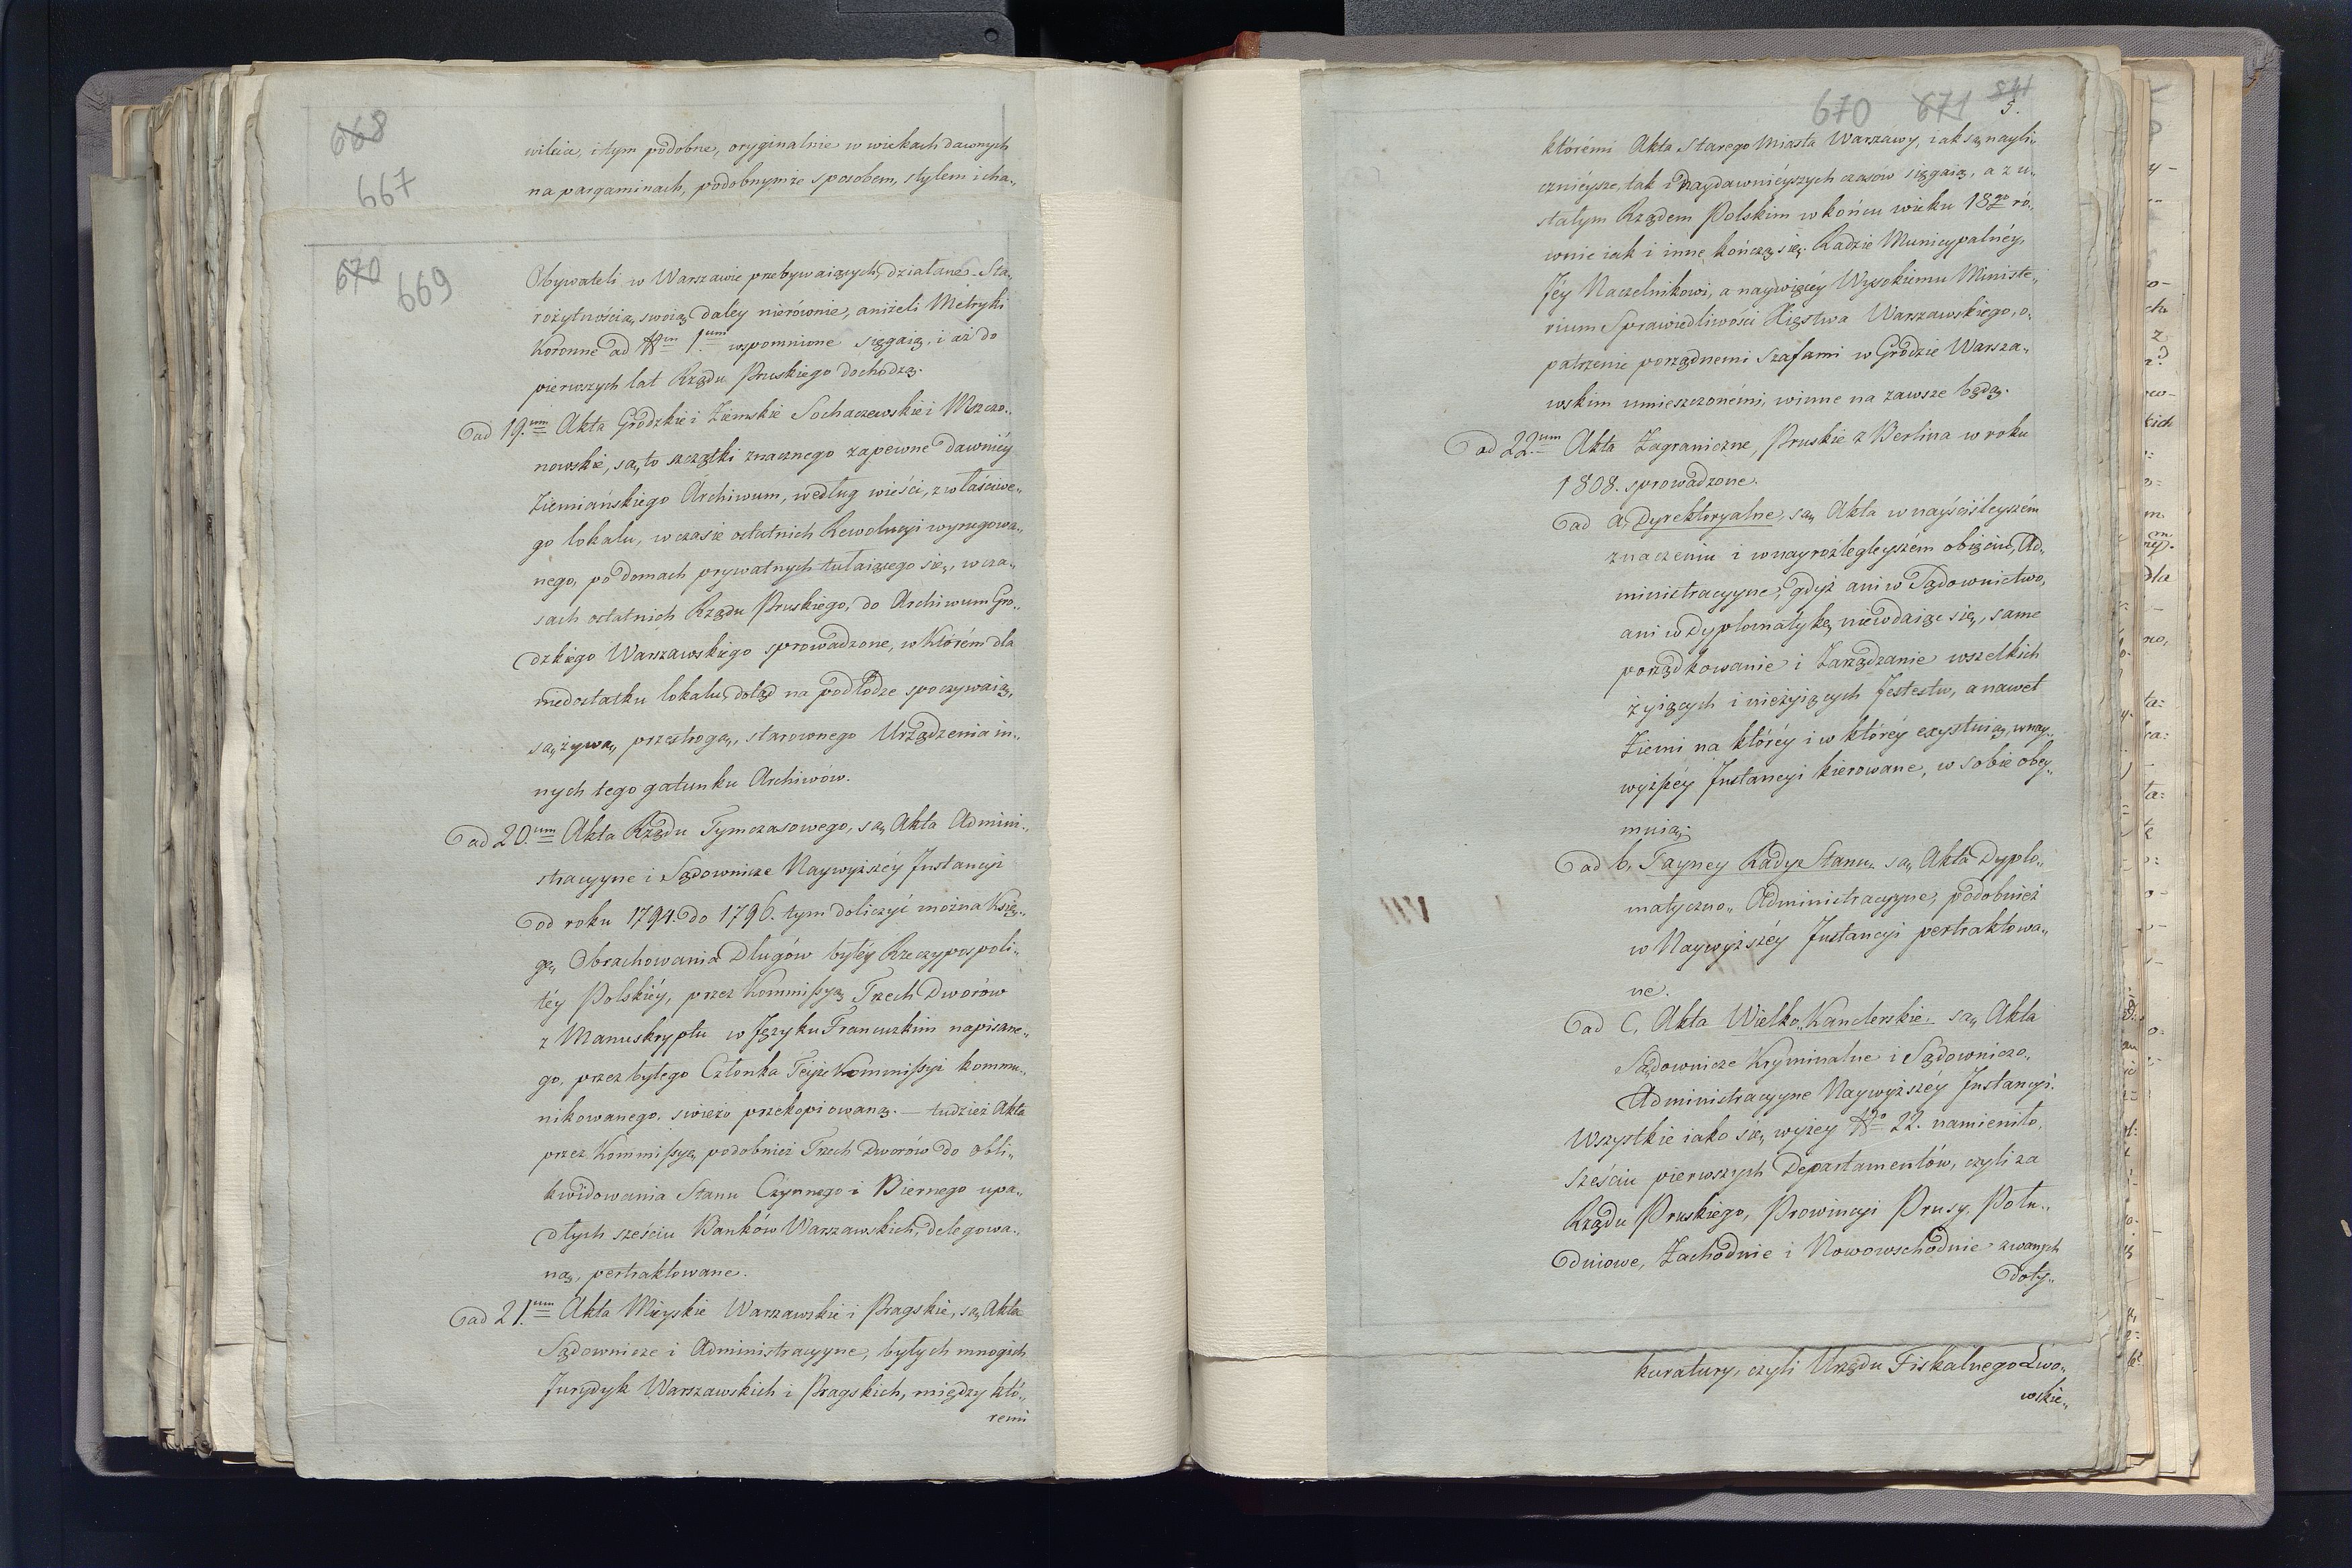 668
667
wileia, i tym podobne, oryginalnie w wiekach dawnych
na pargaminach, podobnymże sposobem, stylem i cha„
670 669
Obywateli w Warszawie przebywaiących, działane. Sta„
rożytnością swoią daley nierównie, aniżeli Metryki
Koronne ad Num 1.um wspomnione sięgaią, i aż do
pierwszych lat Rządu Pruskiego dochodzą.
ad 19.um Akta Grodzkie i Ziemskie Sochaczewskie i Mszczo„
nowskie, są to szczątki znacznego zapewne dawniéy
Ziemiańskiego Archiwum, według wieści, z właściwe„
go lokalu, w czasie ostatnich Rewolucyi wyrugowa„
nego, po domach prywatnych tułaiącego się, w cza„
sach ostatnich Rządu Pruskiego, do Archiwum Gro„
dzkiego Warszawskiego sprowadzone, w którém dla
niedostatku lokalu, dotąd na podłodze spoczywaią,
są żywą przestrogą, starownego Urządzenia in„
nych tego gatunku Archiwów.
ad 20.um Akta Rządu Tymczasowego, są Akta Admini„
stracyyne i Sądownicze Naywyższéy Instancyi
od roku 1794. do 1796. tym doliczyć można Księ„
gę Obrachowania Długów byłéy Rzeczypospoli„
téy Polskiéy, przez Kommissyą Trzech Dworów
z Manuskryptu w Języku Francuzkim napisane„
go, przez byłego Członka Teyże Kommissyi kommu„
nikowanego, swieżo przekopiowaną. — tudzież Akta
przez Kommissyą podobnież Trzech Dworów do obli„
kwidowania Stanu Czynnego i Biernego upa„
dłych sześciu Banków Warszawskich, delegowa„
ną, pertraktowane.
ad 21.um Akta Mieyskie Warszawskie i Pragskie, są Akta
Sądownicze i Administracyyne, byłych mnogich
Jurydyk Warszawskich i Pragskich, między któ„
remi
670 671 541
5.
którémi Akta Starego Miasta Warszawy, iak są nayli„
cznieysze, tak i naydawnieyszych czasów sięgaią, a z u„
stałym Rządem Polskim w końcu wieku 18go ró„
wnie iak i inne kończą się. Radzie Municypalnéy,
Jéy Naczelnikowi, a naywięcéy Wysokiemu Ministe„
rium Sprawiedliwości Xięstwa Warszawskiego, o„
patrzenie porządnemi Szafami w Grodzie Warsza„
wskim umieszczonémi, winne na zawsze będą.
ad 22.um Akta Zagraniczne, Pruskie z Berlina w roku
1808. sprowadzone.
ad a, Dyrektoryalne, są Akta w nayściśleyszém
znaczeniu i w nayrozlegleyszém obięciu, Ad„
ministracyyne, gdyż ani w Sądownictwo,
ani w Dyplomatykę niewdaiąc się, same
porządkowanie i Zarządzanie wszelkich
żyiących i nieżyiących Jestestw, a nawet
Ziemi na któréy i w któréy exystuią, w nay„
wyższéy Instancyi kierowane, w sobie obey„
muią.
ad b, Tayney Rady Stanu są Akta Dyplo„
matyczno„ Administracyyne, podobnież
w Naywyższéy Instancyi pertraktowa„
ne.
ad c, Akta Wielko„Kanclerskie. są Akta
Sądownicze Kryminalne i Sądowniczo„
Administracyyne Naywyższéy Instancyi.
Wszystkie iako się wyżey No 22. namieniło,
sześciu pierwszych Departamentów, czyli za
Rządu Pruskiego, Prowincyi Prusy, Połu„
dniowe, Zachodnie i Nowowschodnie zwanych
doty„
kuratury, czyli Urzędu Fiskalnego Lwo„
wskie„